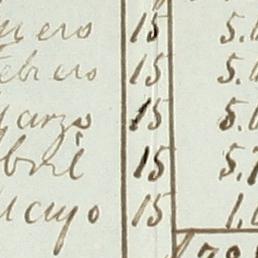 nero 15 5.
ebrero 15 5.
arzo 15 5.
bril 15 5.
ayo 15 1.